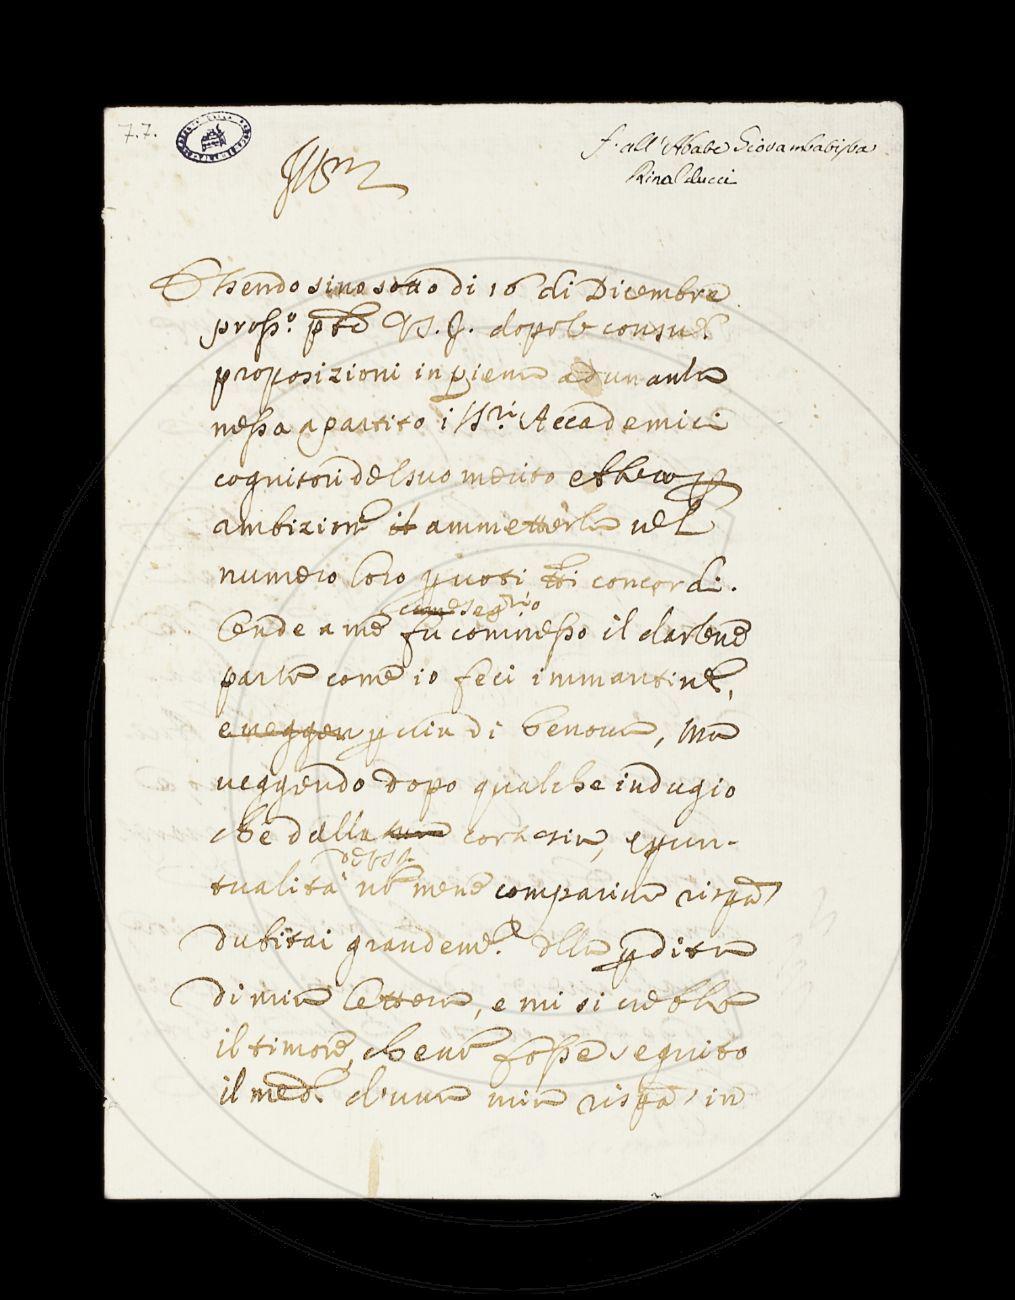 7.7.
f. all'Abate Giovambatista
Rinalducci
Ill.mo
Essendo sino sotto di 16 di Dicembre
pross.o p.to V.S.I. dopo le consuete
proposizioni in piena adunanza
messa a partito i SS.ri Accademici
cognitori del suo merito ebbero p
ambizione il ammetterla nel
numero loro p voti tti concordi.
come Seg.rio
Onde a me fù commesso il darlene
parte come io feci immantinte,
e veggen p via di Genova, Ma
veggendo dopo qualche indugio
che dalla sua cortesia, e pun-
dessa
tualità nō mene compariva rispa,
dubitai grandeme. della pdita
di mia Lettera, e mi si accrebbe
il timore, che nō fosse seguito
il med.o d'una mia rispa, in